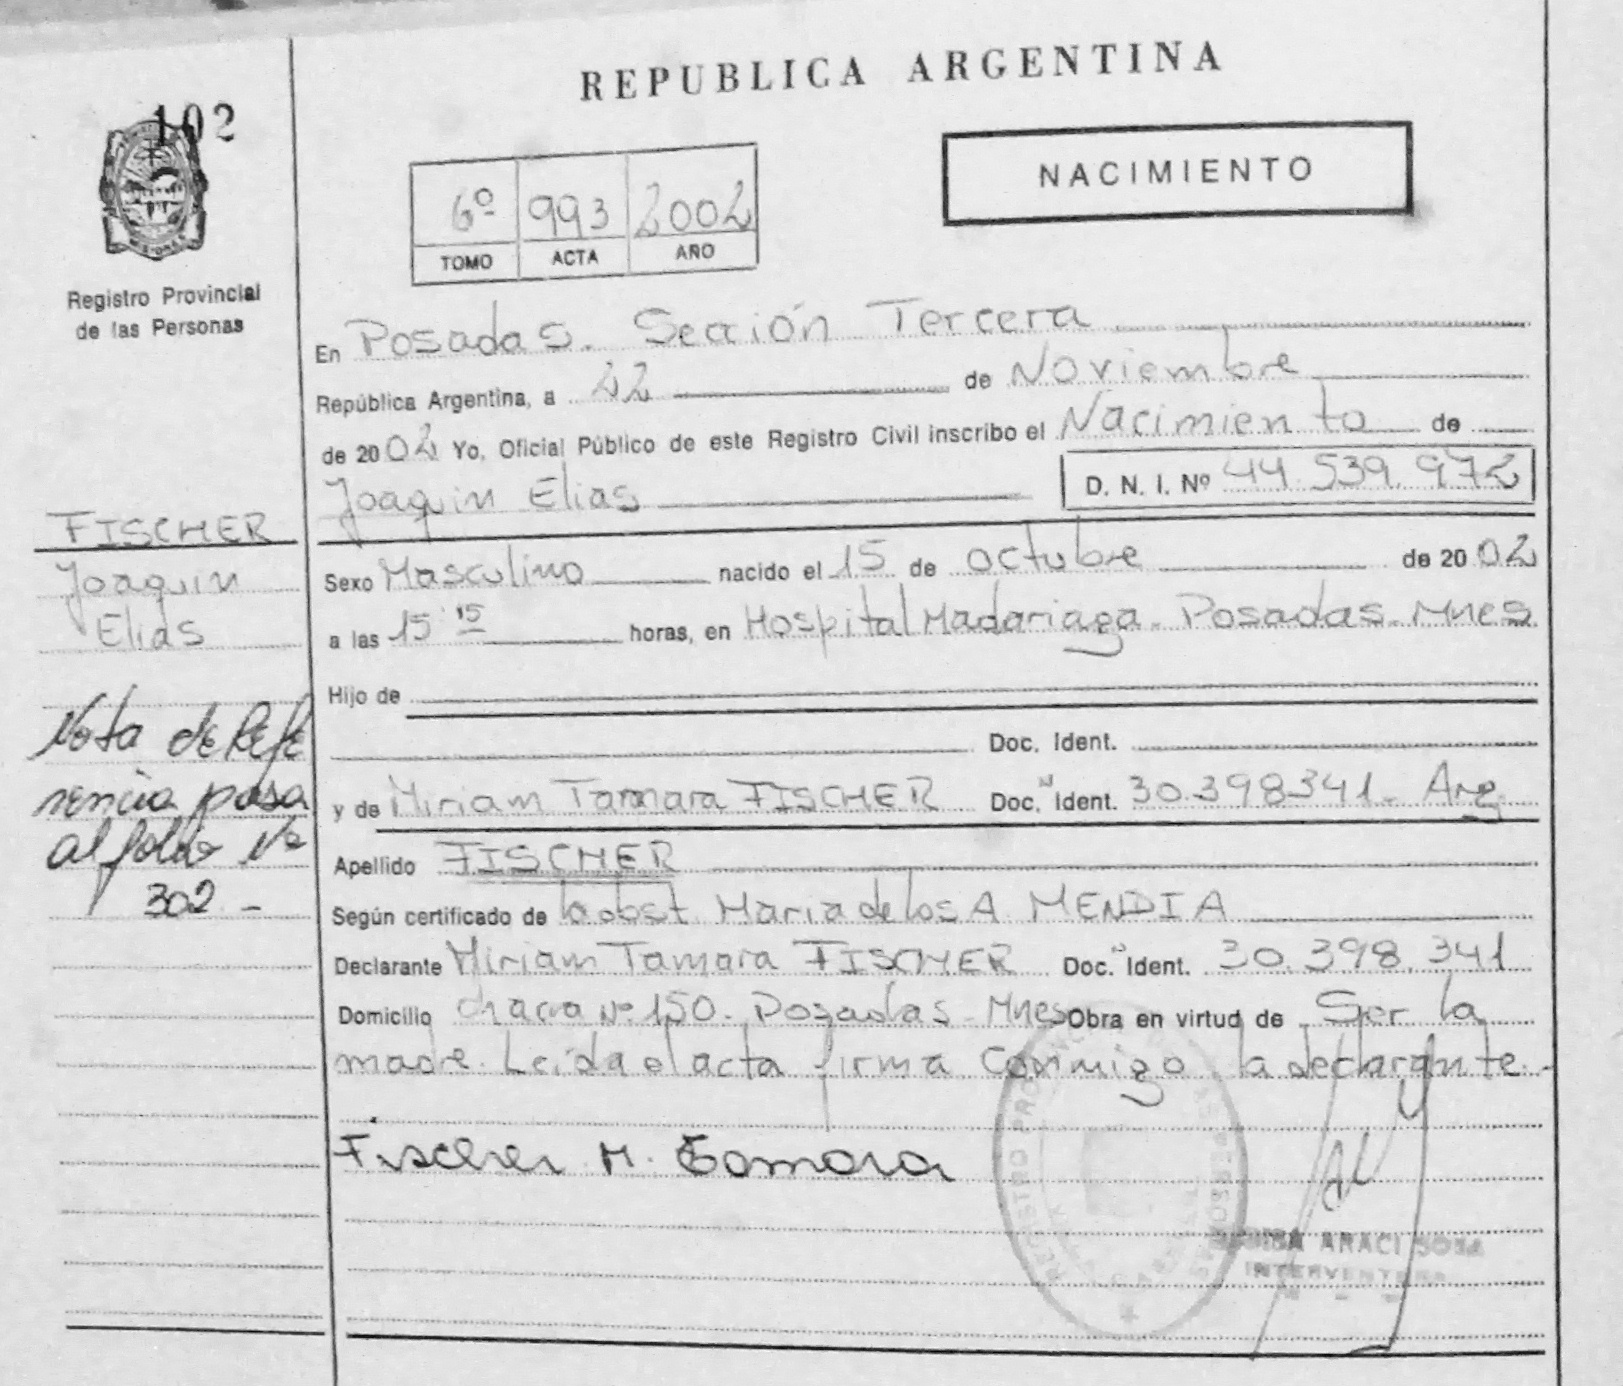 REPUBLICA ARGENTINA
102
NACIMIENTO
6º 993 2002
TOMO ACTA AÑO
Registro Provincial
de las Personas
En Posadas. Sección Tercera
República Argentina, a 22 de Noviembre
de 2002 Yo, Oficial Público de este Registro Civil inscribo el Nacimiento de
Joaquin Elias D. N. I. Nº 44.539.972
FISCHER
Joaquin
Elias
Sexo Masculino nacido el 15 de octubre de 2002
a las 15 15 horas, en Hospital Madariaga. Posadas. Mnes
Hijo de
Doc. Ident.
y de Miriam Tamara FISCHER Doc. Ident. 30.398341- Arg.
Apellido FISCHER
Según certificado de la obst. Maria de los A MENDIA
Declarante Miriam Tamara FISCHER Doc. Ident. 30.398.341
Domicilio chacra Nº 150. Posadas - Mnes Obra en virtud de Ser la
madre. Leida el acta firma conmigo la declarante.-
Nota de Refe
rencia pasa
al folio Nº
302 -
Fischer M. Tamara
ARACI SOSA
INTERVENTORA